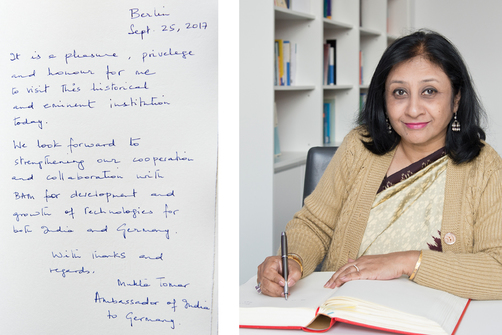 Berlin
Sept. 25, 2017
It is a pleasure, privelege
and honour for me
to visit this historical
and eminent institution
today.
We look forward to
strengthening our cooperation
and collaboration with
BAM for development and
growth of technologies for
both India and Germany.
With thanks and
regards.
Mukta Tomar
Ambassador of India
to Germany.